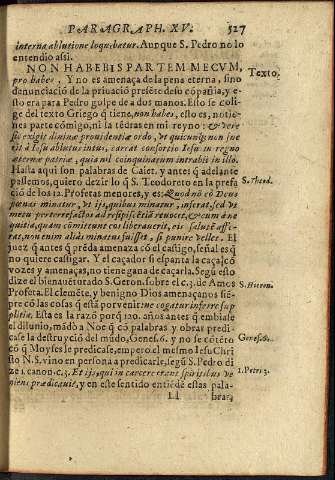 PARAGRAPH. XV. 527
interna ablutione loquebatur. Aunque S. Pedro no lo
entendio assi.
NON HABEBIS PARTEM MECVM,
pro habes, Y no es amenaça de la pena eterna, sino
Texto.
denunciació de la priuació presēte desu cōpañia, y es-
to era para Pedro golpe de a dos manos. Esto se coli-
ge del texto Griego q̃ tiene, non habes, esto es, notie-
nes parte cōmigo, ni la tēdras en mi reyno: & vere
sic exigit diuinæ prouidentiæ ordo, vt quicunque non fue
rit à Iesu ablutus intus, careat consortio Iesu in regno
æternæ patriæ, quia nil coinquinatum intrabit in illo.
Hasta aqui son palabras de Caiet. y antes q̃ adelante
passemos, quiero dezir lo q̃ S. Teodoreto en la prefa
S. Theod.
ció de los 12. Profetas menores, y es: Quod nō cō Deus
pœnas minatur, vt ijs, quibus minatur, inferat, sed vt
metu perterrefactos ad resipiscētiā reuocet, & cum à ne
quitia, quam cōmittunt eos liberauerit, eis salutē affe-
rat, non enim aliàs minatus fuisset, si punire vellet. El
juez q̃ antes q̃ prēda amenaza cō el castigo, señal es q̃
no quiere castigar. Y el caçador si espanta la caça, cō
vozes y amenaças, no tiene gana de caçarla. Segũ esto
dize el bienauēturado S. Geron. sobre el c. 3. de Amos
S. Hieron.
Profeta. El clemēte, y benigno Dios amenaçanos siē-
pre cō las cosas q̃ està por venir: ne cogatur inferre sup
plitia. Esta es la razō porq̃ 120. años antes q̃ embiase
el diluuio, mādò a Noe q̃ cō palabras y obras predi-
case la destruyció del mūdo, Genes. 6. y no se cōtētò
Genes. 6.
có q̃ Moyses le predicase, empero el mesmo Iesu Chri
sto N.S. vino en persona a predicarle, segū S. Pedro di
ze 1. canon. c. 3. Et ijs, qui in carcere erant spiritibus ve
1. Petri 3.
niens prædicauit, y en este sentido entiēdē estas pala-
Ll bras,